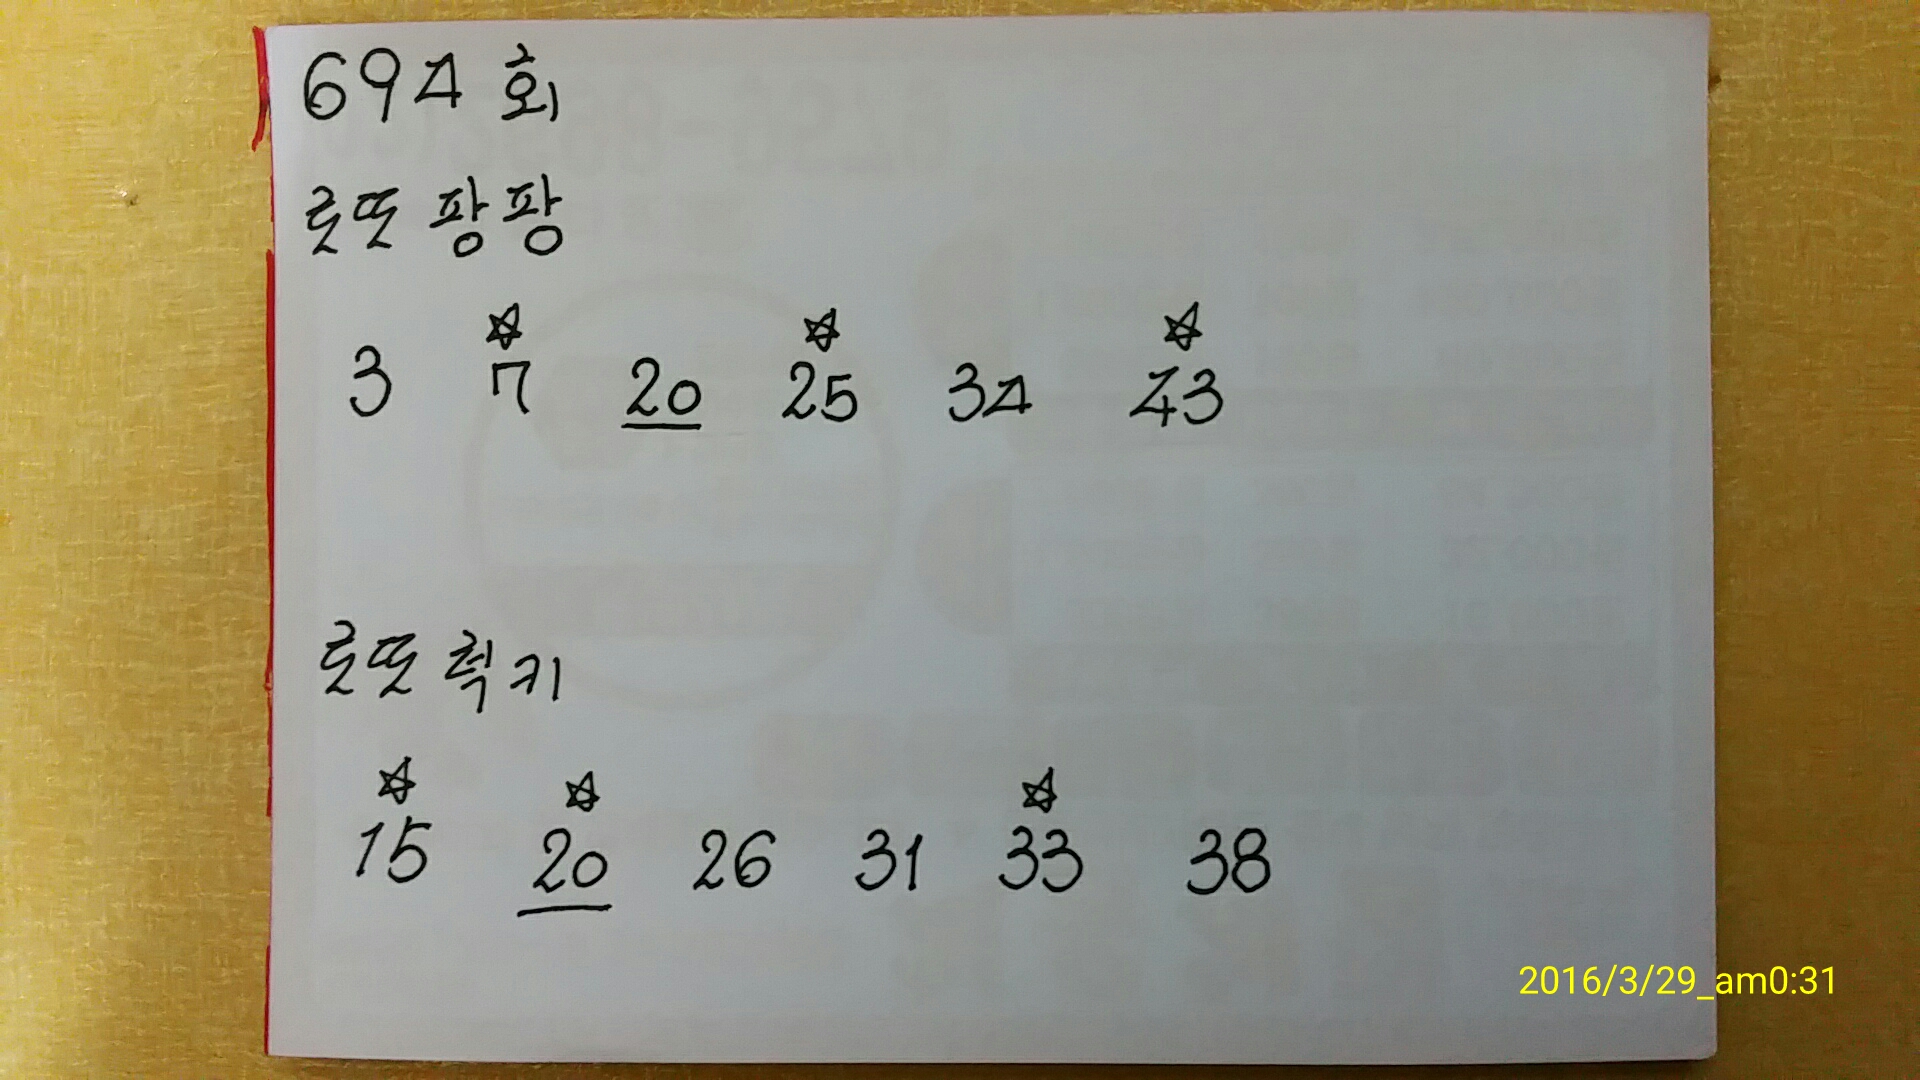 694 회
로또 팡팡
☆ ☆ ☆
3 7 20 25 34 43
로또 럭키
☆ ☆ ☆
15 20 26 31 33 38
2016/3/29_am0:31